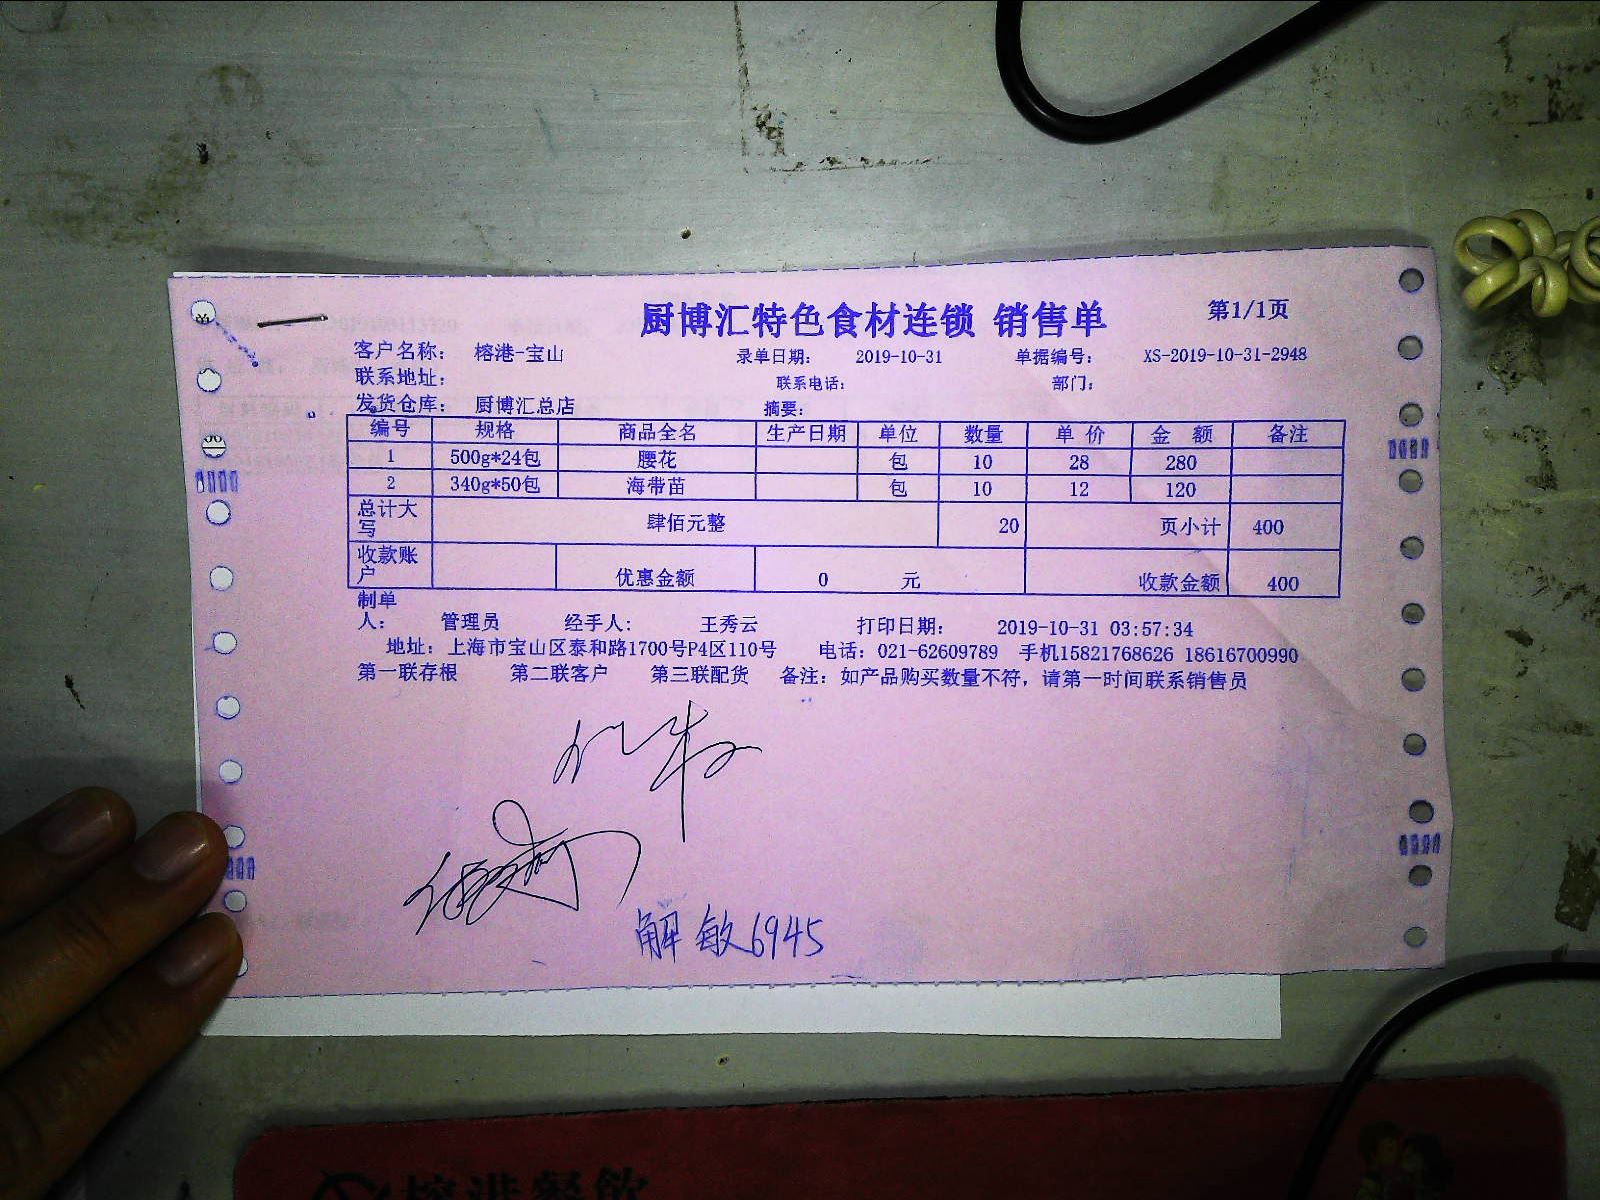 厨博汇特色食材连锁 销售单 第1/1页
客户名称： 榕港-宝山 录单日期： 2019-10-31 单据编号： XS-2019-10-31-2948
联系地址： 联系电话： 部门：
发货仓库： 厨博汇总店 摘要：
编号 规格 商品全名 生产日期 单位 数量 单 价 金 额 备注
1 500g*24包 腰花 包 10 28 280
2 340g*50包 海带苗 包 10 12 120
总计大写 肆佰元整 20 页小计 400
收款账户 优惠金额 0 元 收款金额 400
制单人： 管理员 经手人： 王秀云 打印日期： 2019-10-31 03:57:34
地址：上海市宝山区泰和路1700号P4区110号 电话：021-62609789 手机15821768626 18616700990
第一联存根 第二联客户 第三联配货 备注：如产品购买数量不符，请第一时间联系销售员
解敏6945
榕港餐饮